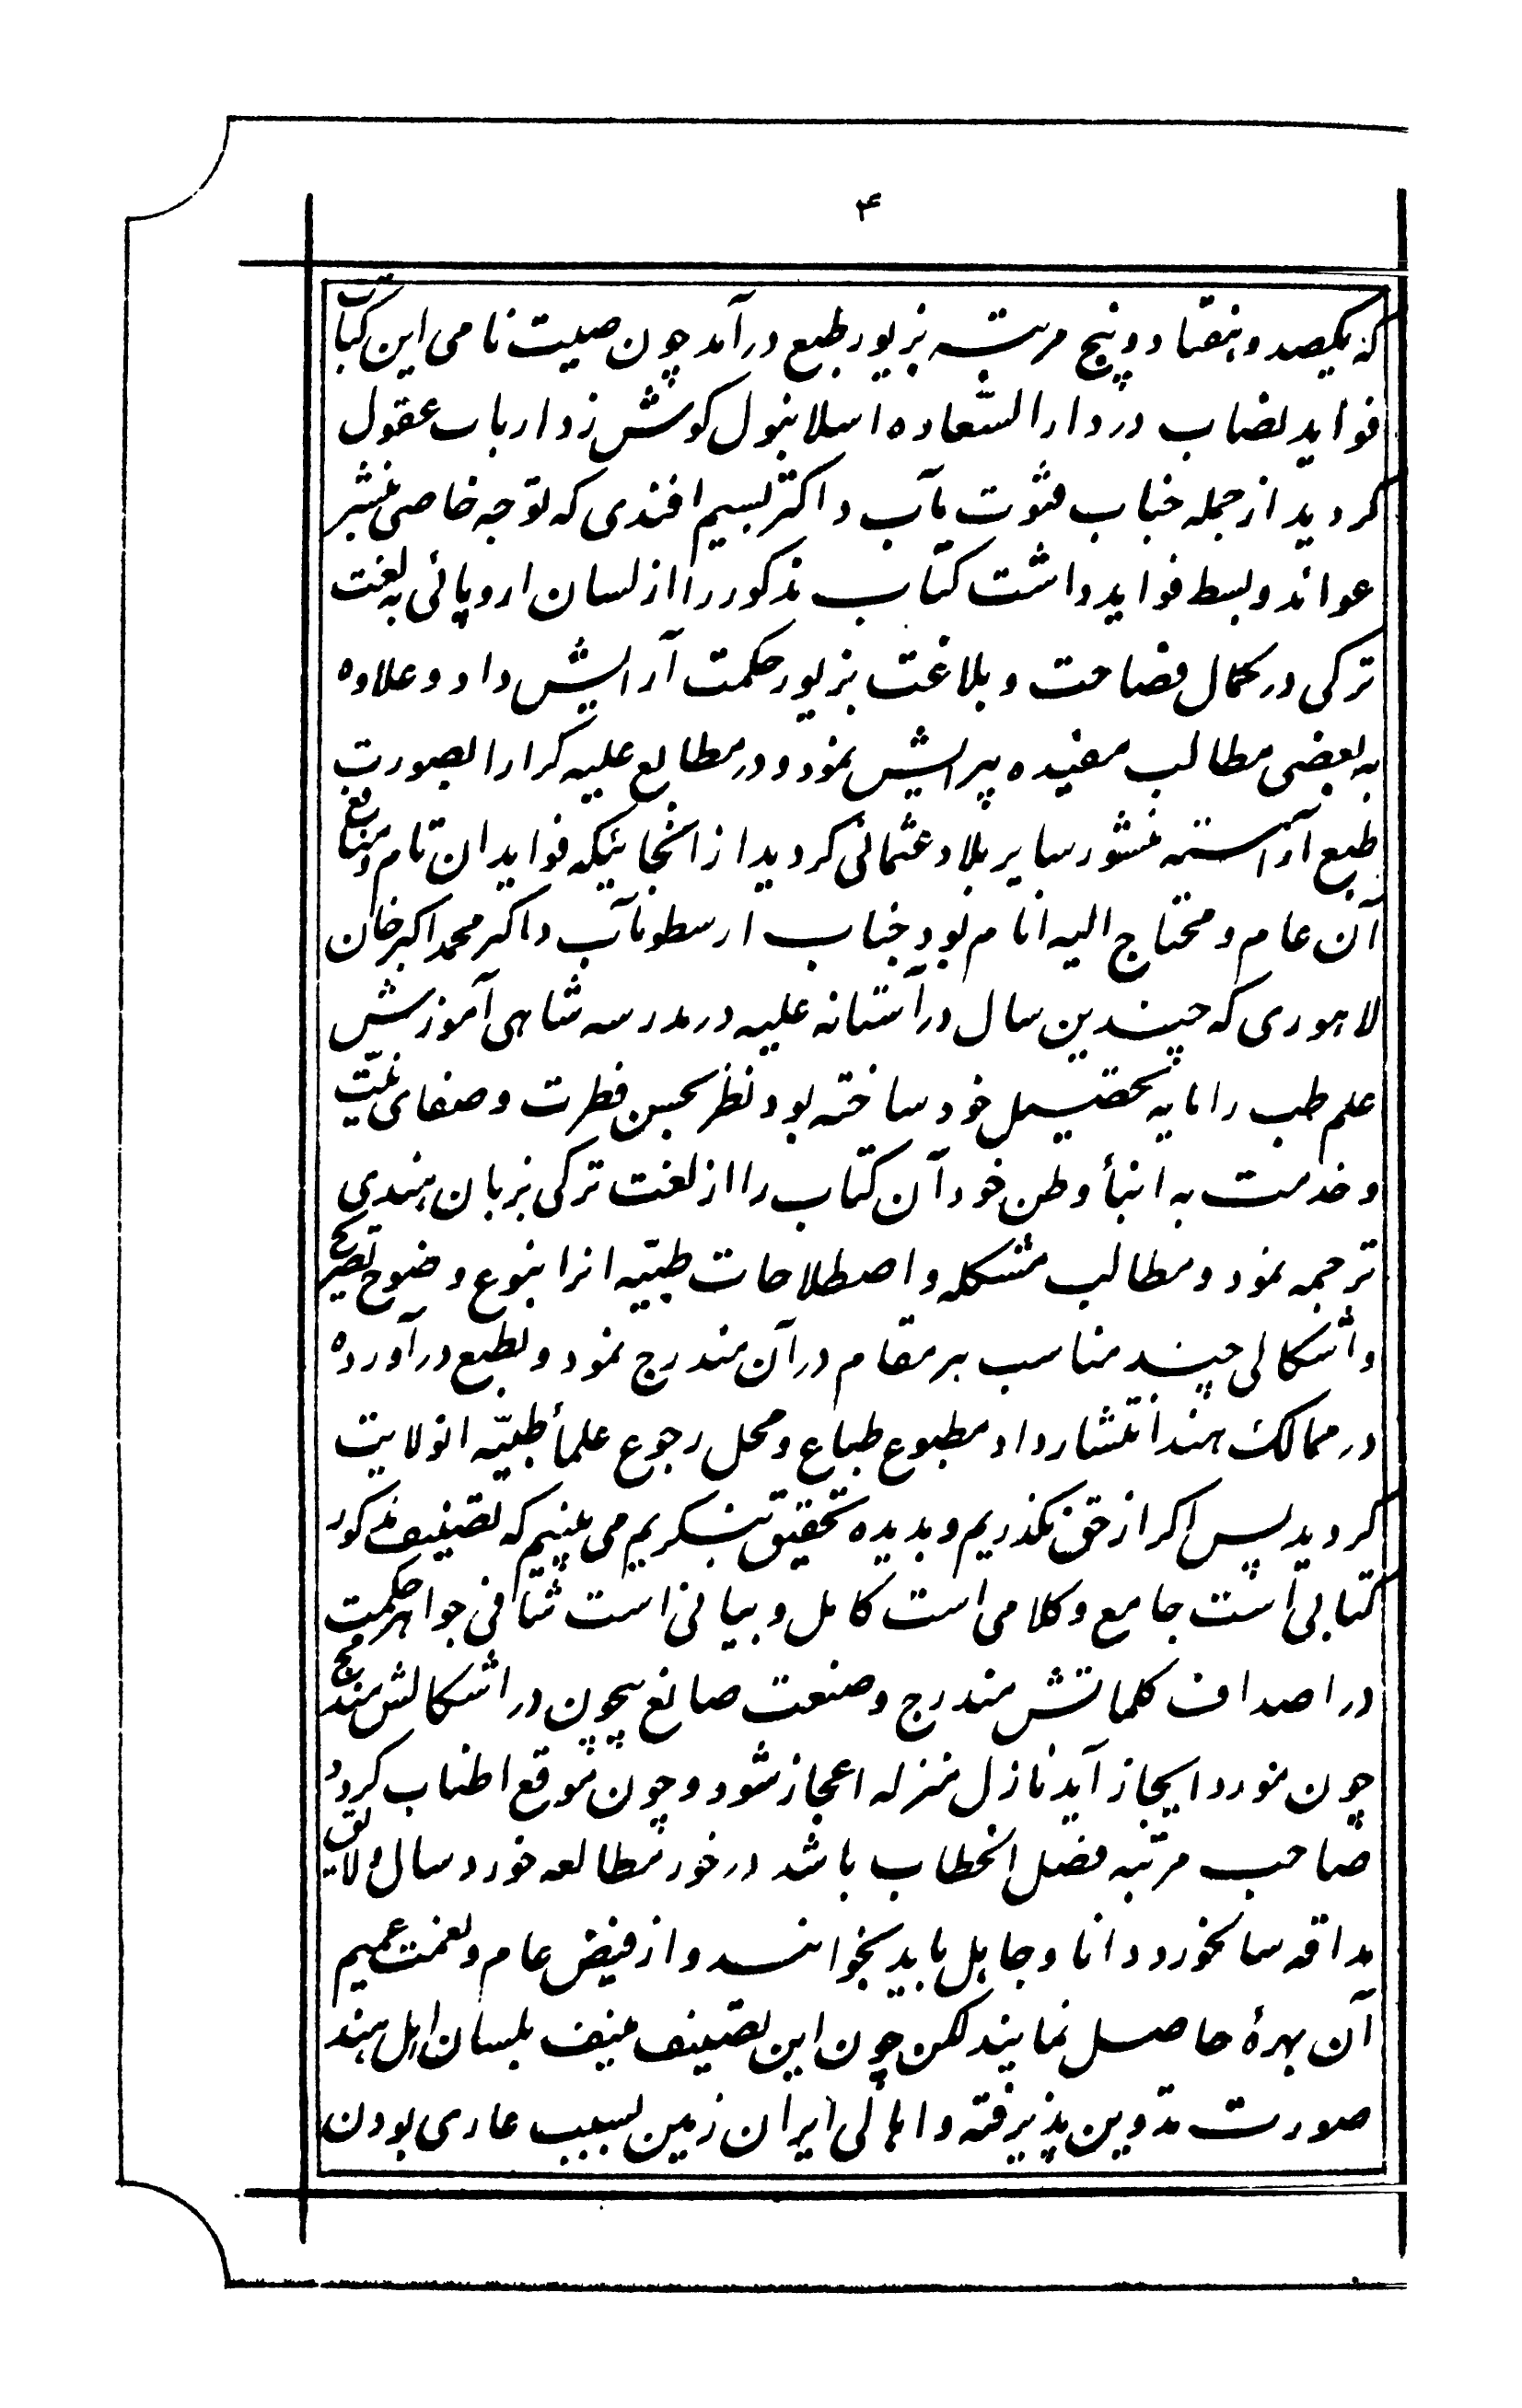 ۴
که یکصد و هفتاد و پنج مرتبه بزیور طبع درآمد چون صیت نامی این کتاب
فواید نصاب در دارالسّعاده اسلامبول کوش زد ارباب عقول
کردید از جمله جناب فتوت مآب داکتر بسیم افندی که توجه خاصی بنشر
عواند و بسط فواید داشت کتاب مذکور را از لسان اروپائی به لغت
ترکی در کمال فصاحت و بلاغت بزیور حکمت آرایش داد و علاوه
به بعضی مطالب مفیده پیرایش نمود و در مطابع علیه کرارا بصورت
طبع آراسته منشور سایر بلاد عثمانی کردید از آنجائیکه فواید ان تام و منافع
آن عام و محتاج الیه انام بود جناب ارسطو مآب داکتر محمد اکبر خان
لاهوری که چندین سال در آستانه علیه در مدرسه شاهی آموزش
علم طب را مایه تحصیل خود ساخته بود نظر بحسن فطرت و صفای نیّت
و خدمت به ابنأ وطن خود آن کتاب را از لغت ترکی بزبان هندی
ترجمه نمود و مطالب مشکله و اصطلاحات طبیّه انرا بنوع وضوح تصریح
و اشکالی چند مناسب هر مقام در آن مندرج نمود و بطبع درآورده
در ممالک هند انتشار داد مطبوع طباع و محل رجوع علمأ طبیّه انولایت
کردید پس اکر از حق نکذریم و بدیده تحقیق بنکریم می بینیم که تصنیف مذکور
کتابی است جامع و کلامی است کامل و بیانی است شافی جواهر حکمت
در اصداف کلماتش مندرج و صنعت صانع بیچون در اشکالش مندمج
چون مورد ایجاز آید نازل منزله اعجاز شود و چون موقع اطناب کردد
صاحب مرتبه فصل الخطاب باشد درخور مطالعه خورد سال و لایق
مداقه سالخورد دانا و جاهل باید بخوانند و از فیض عام و نعمت عمیم
آن بهرۀ حاصل نمایند لکن چون این تصنیف منیف بلسان اهل هند
صورت تدوین پذیرفته و اهالی ایران زمین بسبب عاری بودن